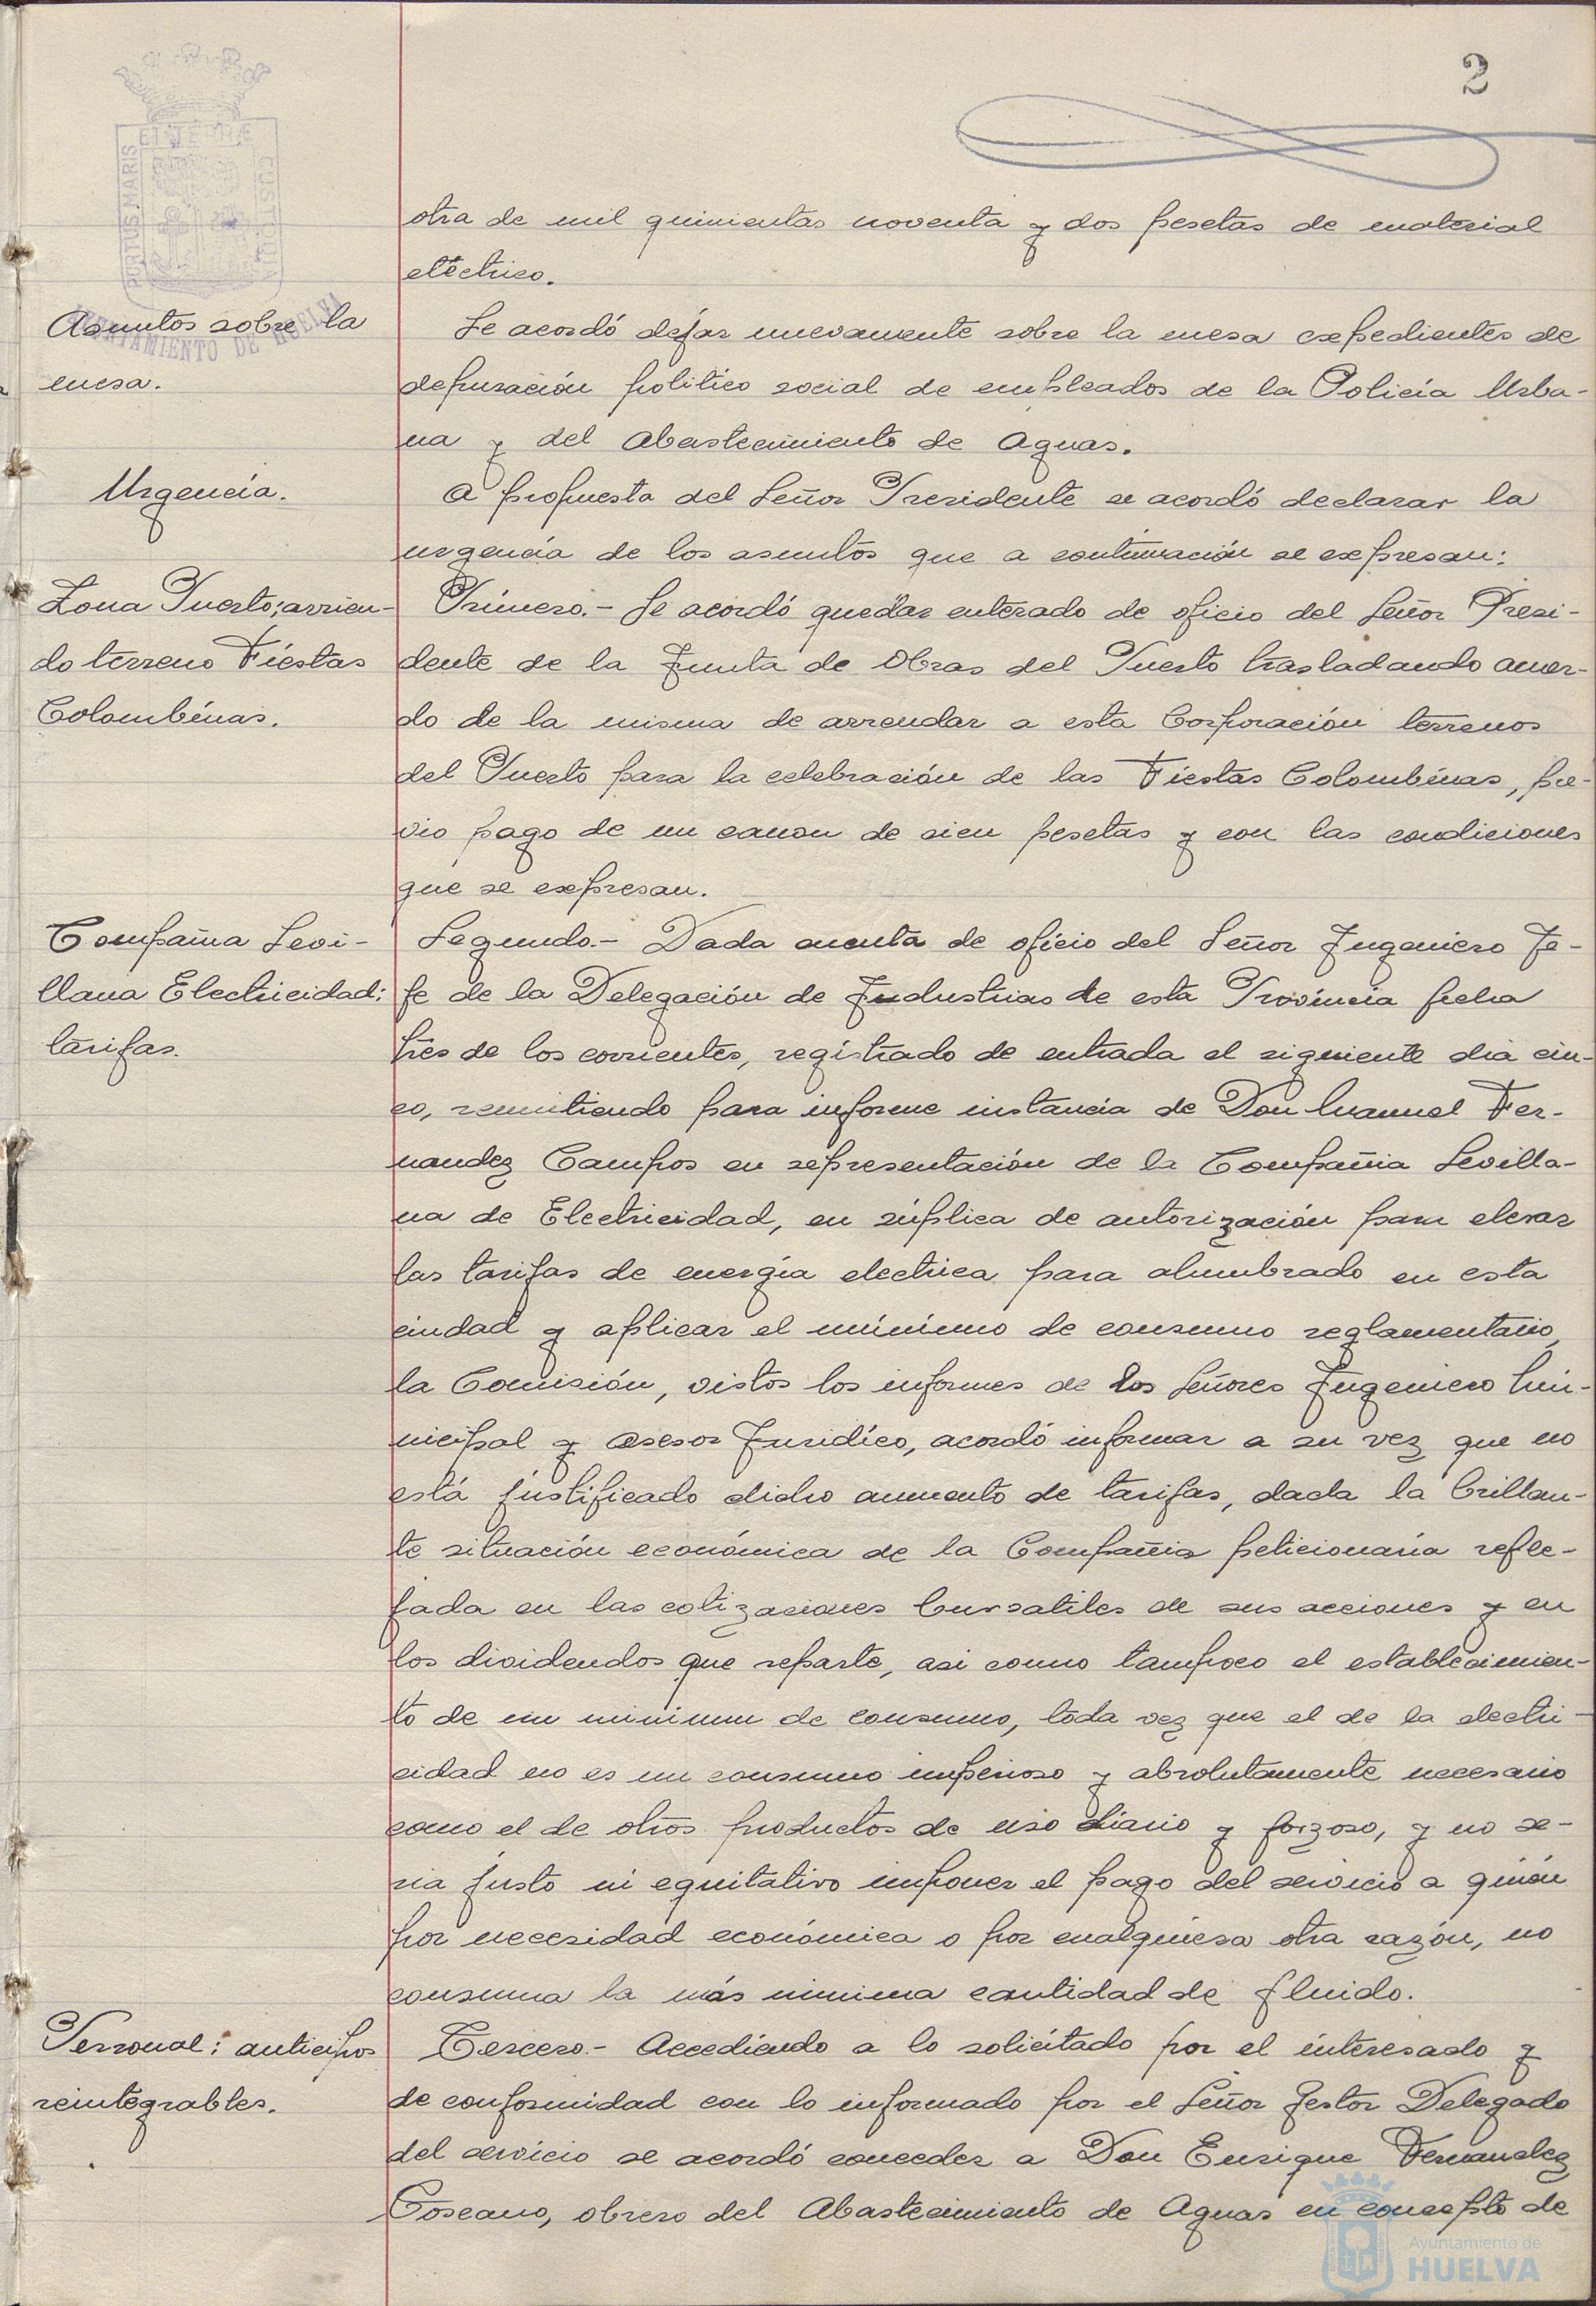 2
PORTUS MARIS
ET TERRÆ
CUSTODIA
AYUNTAMIENTO DE HUELVA
otra de mil quinientas noventa y dos pesetas de material
eléctrico.
Asuntos sobre la
mesa.
Se acordó dejar nuevamente sobre la mesa expedientes de
depuración político social de empleados de la Policía Urba-
na y del Abastecimiento de Aguas.
Urgencia.
A propuesta del Señor Presidente se acordó declarar la
urgencia de los asuntos que a continuación se expresan:
Zona Puerto; arrien-
do terreno Fiestas
Colombinas.
Primero.- Se acordó quedar enterado de oficio del Señor Presi-
dente de la Junta de Obras del Puerto trasladando acuer-
do de la misma de arrendar a esta Corporación terrenos
del Puerto para la celebración de las Fiestas Colombinas, pre-
vio pago de un canon de cien pesetas y con las condiciones
que se expresan.
Compañia Sevi-
llana Electricidad:
tarifas.
Segundo.- Dada cuenta de oficio del Señor Ingeniero Je-
fe de la Delegación de Industrias de esta Provincia fecha
tres de los corrientes, registrado de entrada el siguiente dia cin-
co, remitiendo para informe instancia de Don Manuel Fer-
nandez Campos en representación de la Compañia Sevilla-
na de Electricidad, en súplica de autorización para elevar
las tarifas de energía electrica para alumbrado en esta
ciudad y aplicar el mínimo de consumo reglamentario,
la Comisión, vistos los informes de los Señores Ingeniero Mu-
nicipal y Asesor Juridico, acordó informar a su vez que no
está justificado dicho aumento de tarifas, dada la brillan-
te situación económica de la Compañia peticionaria refle-
jada en las cotizaciones bursatiles de sus acciones y en
los dividendos que reparte, asi como tampoco el establecimien-
to de un minimum de consumo, toda vez que el de la electri-
cidad no es un consumo imperioso y absolutamente necesario
como el de otros productos de uso diario y forzoso, y no se-
ria justo ni equitativo imponer el pago del servicio a quién
por necesidad económica o por cualquiera otra razón, no
consuma la más minima cantidad de fluido.
Personal: anticipos
reintegrables.
Tercero.- Accediendo a lo solicitado por el interesado y
de conformidad con lo informado por el Señor Gestor Delegado
del servicio se acordó conceder a Don Enrique Fernandez
Toscano, obrero del Abastecimiento de Aguas en concepto de
Ayuntamiento de
HUELVA